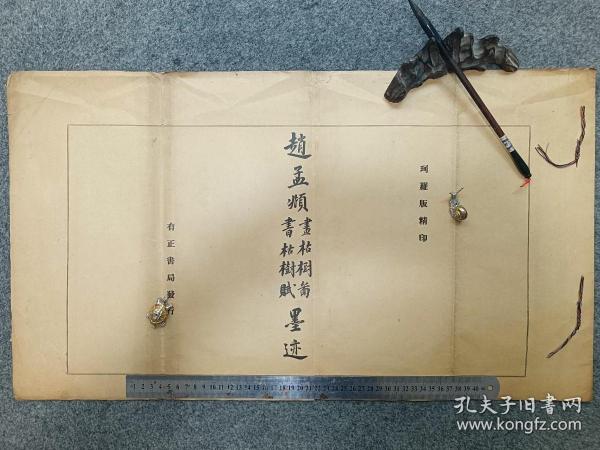 珂羅版精印
趙孟頫
畫枯樹啚
書枯樹賦
墨迹
有正書局發行
1 2 3 4 5 6 7 8 9 10 11 12 13 14 15 16 17 18 19 20 21 22 23 24 25 26 27 28 29 30 31 32 33 34 35 36 37 38 39 40
孔夫子旧书网
www.kongfz.com